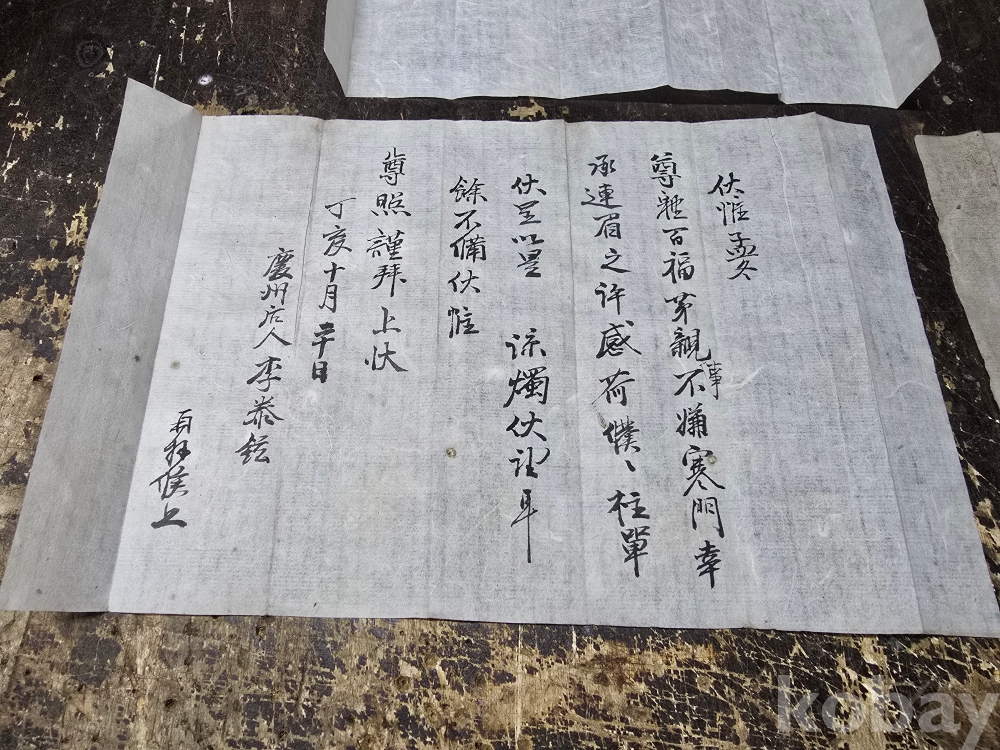 伏惟孟冬
尊體百福第親事不嫌寒門幸
承連眉之許感荷僕〻柱單
伏呈以是 諒燭伏望耳
餘不備伏惟
尊照謹拜上狀
丁亥十月二十日
慶州后人李泰鉉
再拜候上
kobay